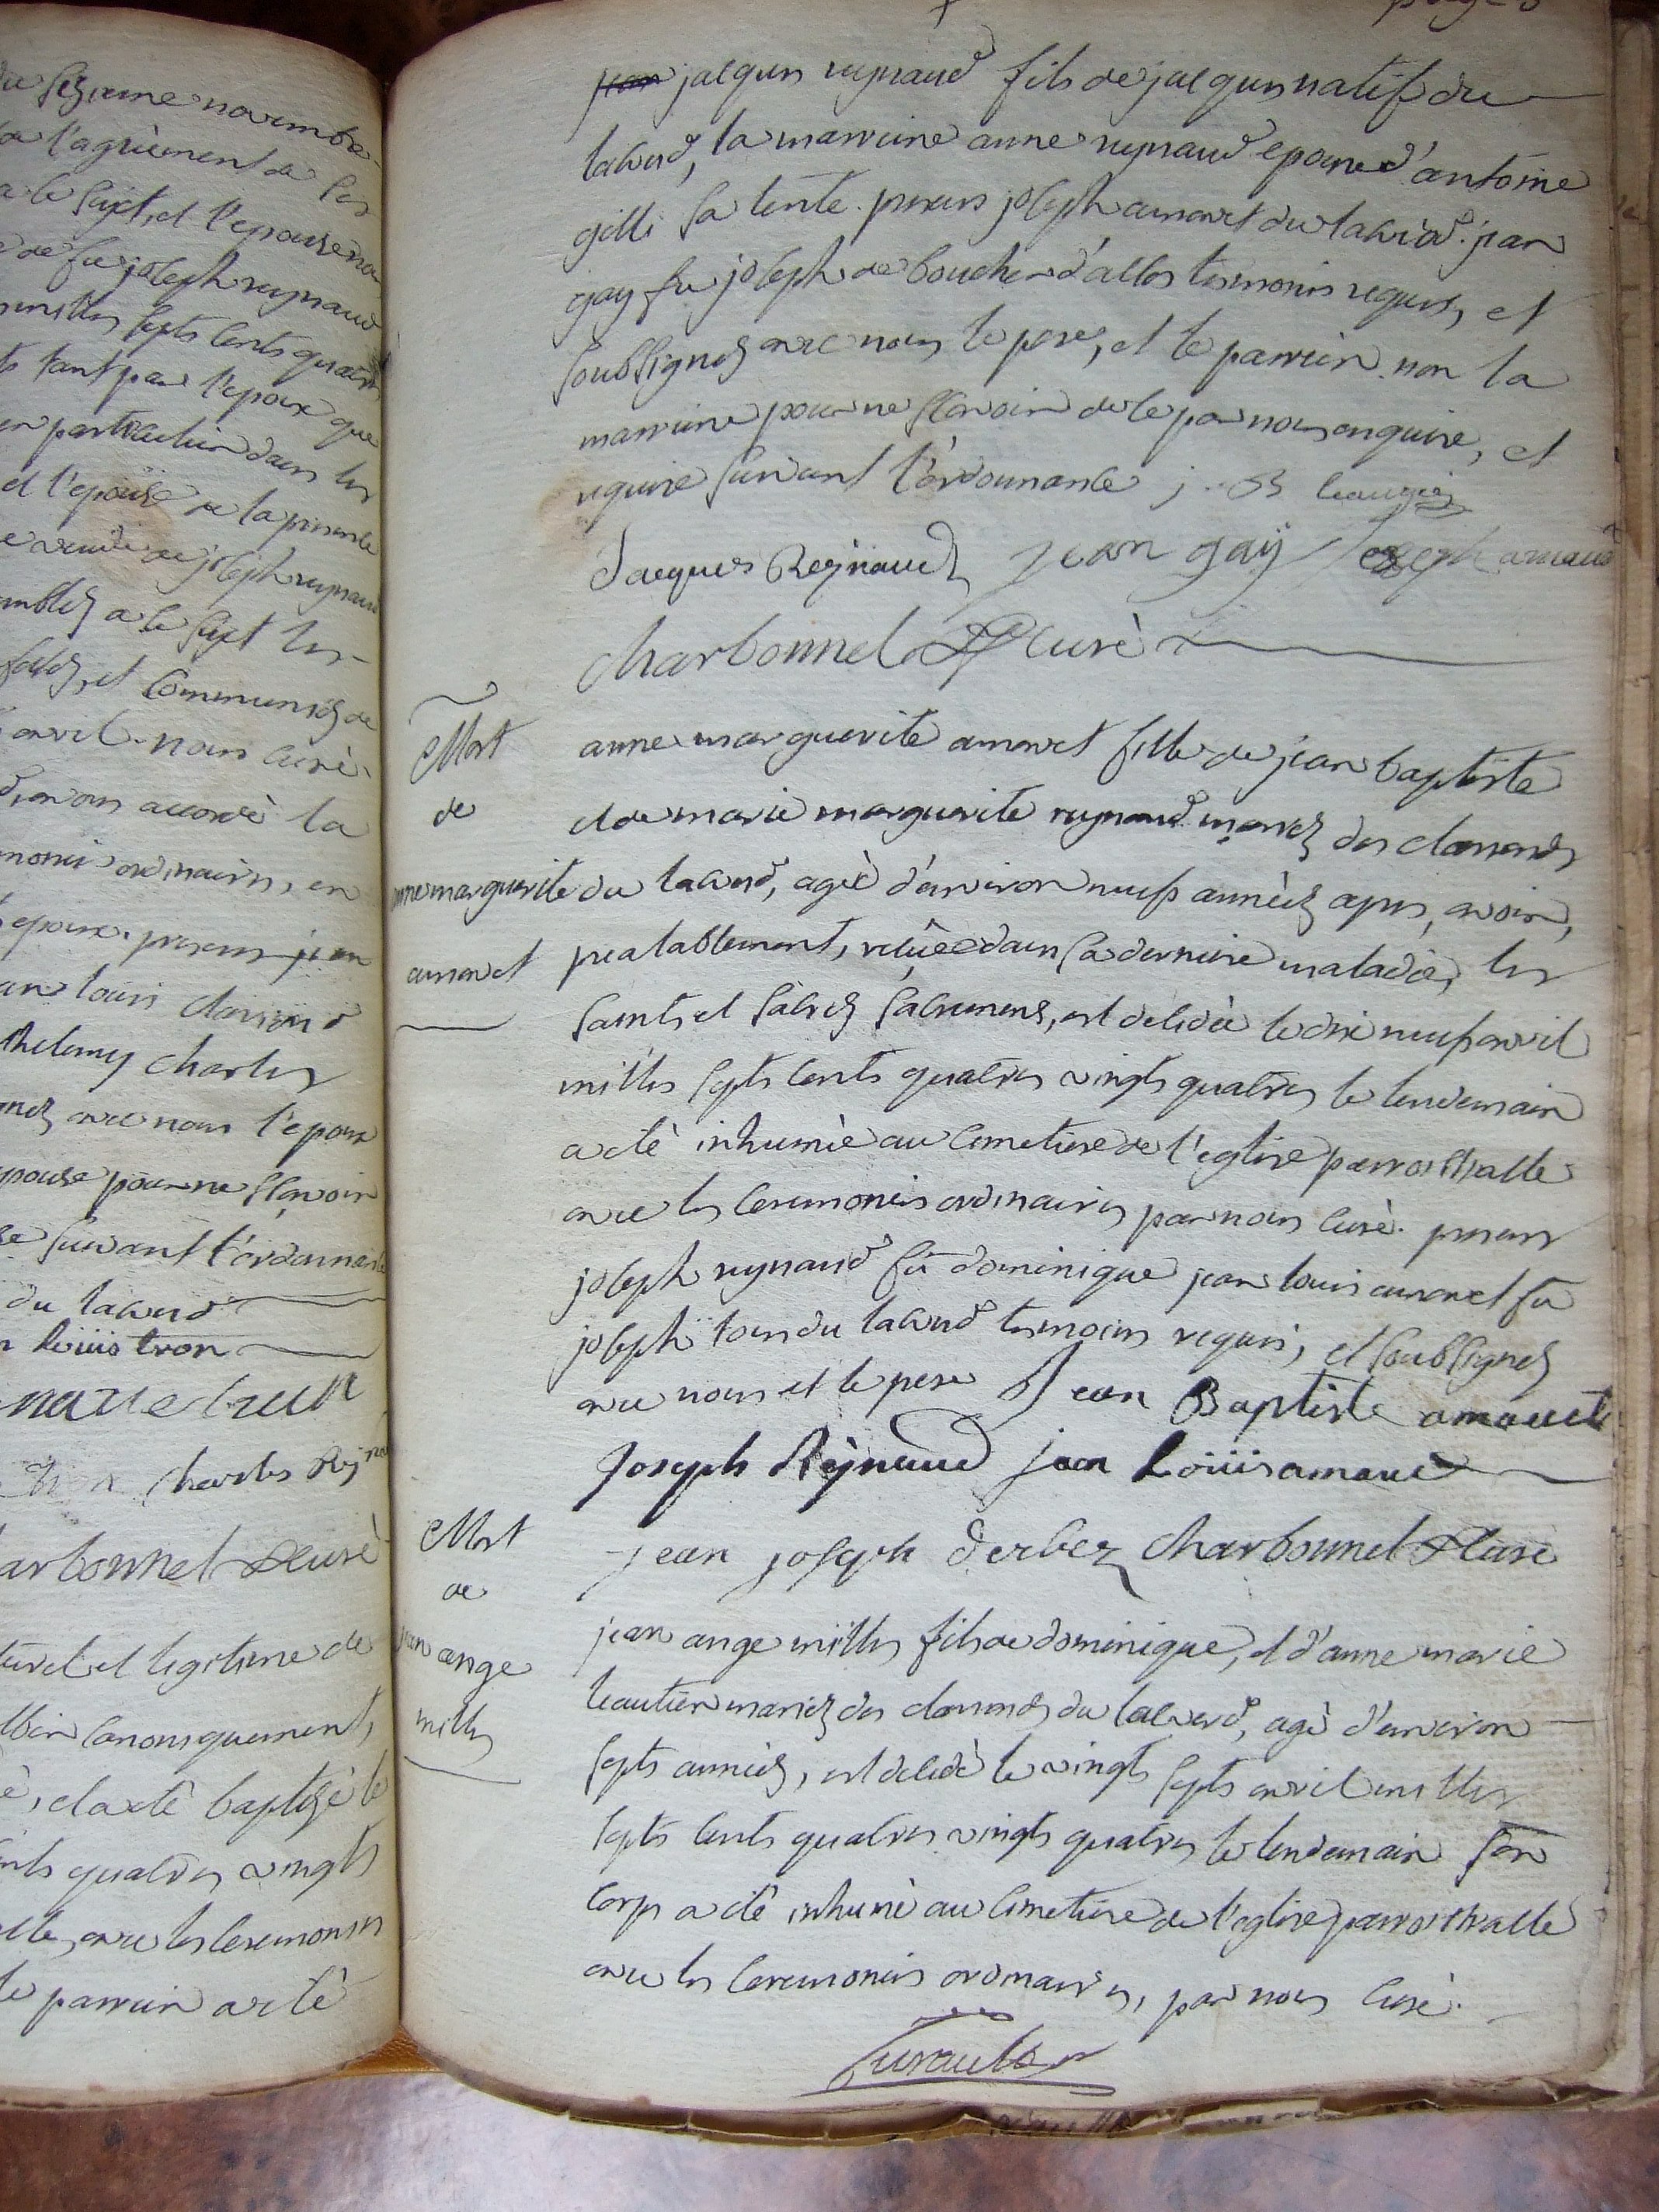 du seizieme novembre
a l'agrèement de ses
a ce sujet, et l'epouse
de fu joseph reynaud
milles septs cents quatre
tant par l'epoux que
en particulier dans les
et l'epouse de la presente
de joseph reynaud
assemblés a ce sujet les
et communiés de
avril nous curè
avons accordè la
ordinaires, en
epoux. presens jean
louis
thelemy charles
avec nous l'epoux
epouse pour ne sçavoir
suivant l'ordonnance
du laverd
louiis tron
charles Rey
arbonnel curè
et legitime de
canoniquement
è, et a etè baptisè le
cents quatres vingts
avec les ceremonies
le parrein a etè
page
jacques reynaud fils de jacques natif du
laverd, la marreine anne reynaud epouse d'antoine
gilli sa tente. presens joseph arnaud du laverd. jean
gay fu joseph de boucher d'allos tesmoins requis, et
soubsignés avec nous le pere, et le parrein non la
marreine pour ne sçavoir de ce par nous enquise, et
requise suivant l'ordonnance j. B leautier
Jacques Rejnaud jean gaÿ Joseph arnaud
charbonnel curè
Mort
de
anne marguerite
arnaud
anne marguerite arnaud fille de jean baptiste
et de marie marguerite reynaud mariés des clarionds
du laverd, agèe d'environ neufs annèes apres, avoir,
prealablement, reçue dans sa derniere maladie, les
saints et sacrés sacremens, est decedèe le dix neufs avril
milles septs cents quatres vingts quatres le lendemain
a etè inhumèe au cimetiere de l'eglise parroissialle
avec les ceremonies ordinaires par nous curè. presens
joseph reynaud fu dominique jean louis arnaud fu
joseph tous du laverd tesmoins requis, et soubsignés
avec nous et le pere Jean Baptiste arnaud
Joseph Rèjnaud jean Loüis arnaud
jean joseph derbez charbonnel curè
Mort
de
jean ange
milles
jean ange milles fils de dominique, et d'anne marie
leautier mariés des clarionds du laverd, agè d'environ
septs annèes, est decedè le vingts septs avril milles
septs cents quatres vingts quatres le lendemain son
corps a etè inhumè au cimetiere de l'eglise parroissialle
avec les ceremonies ordinaires, par nous curè.